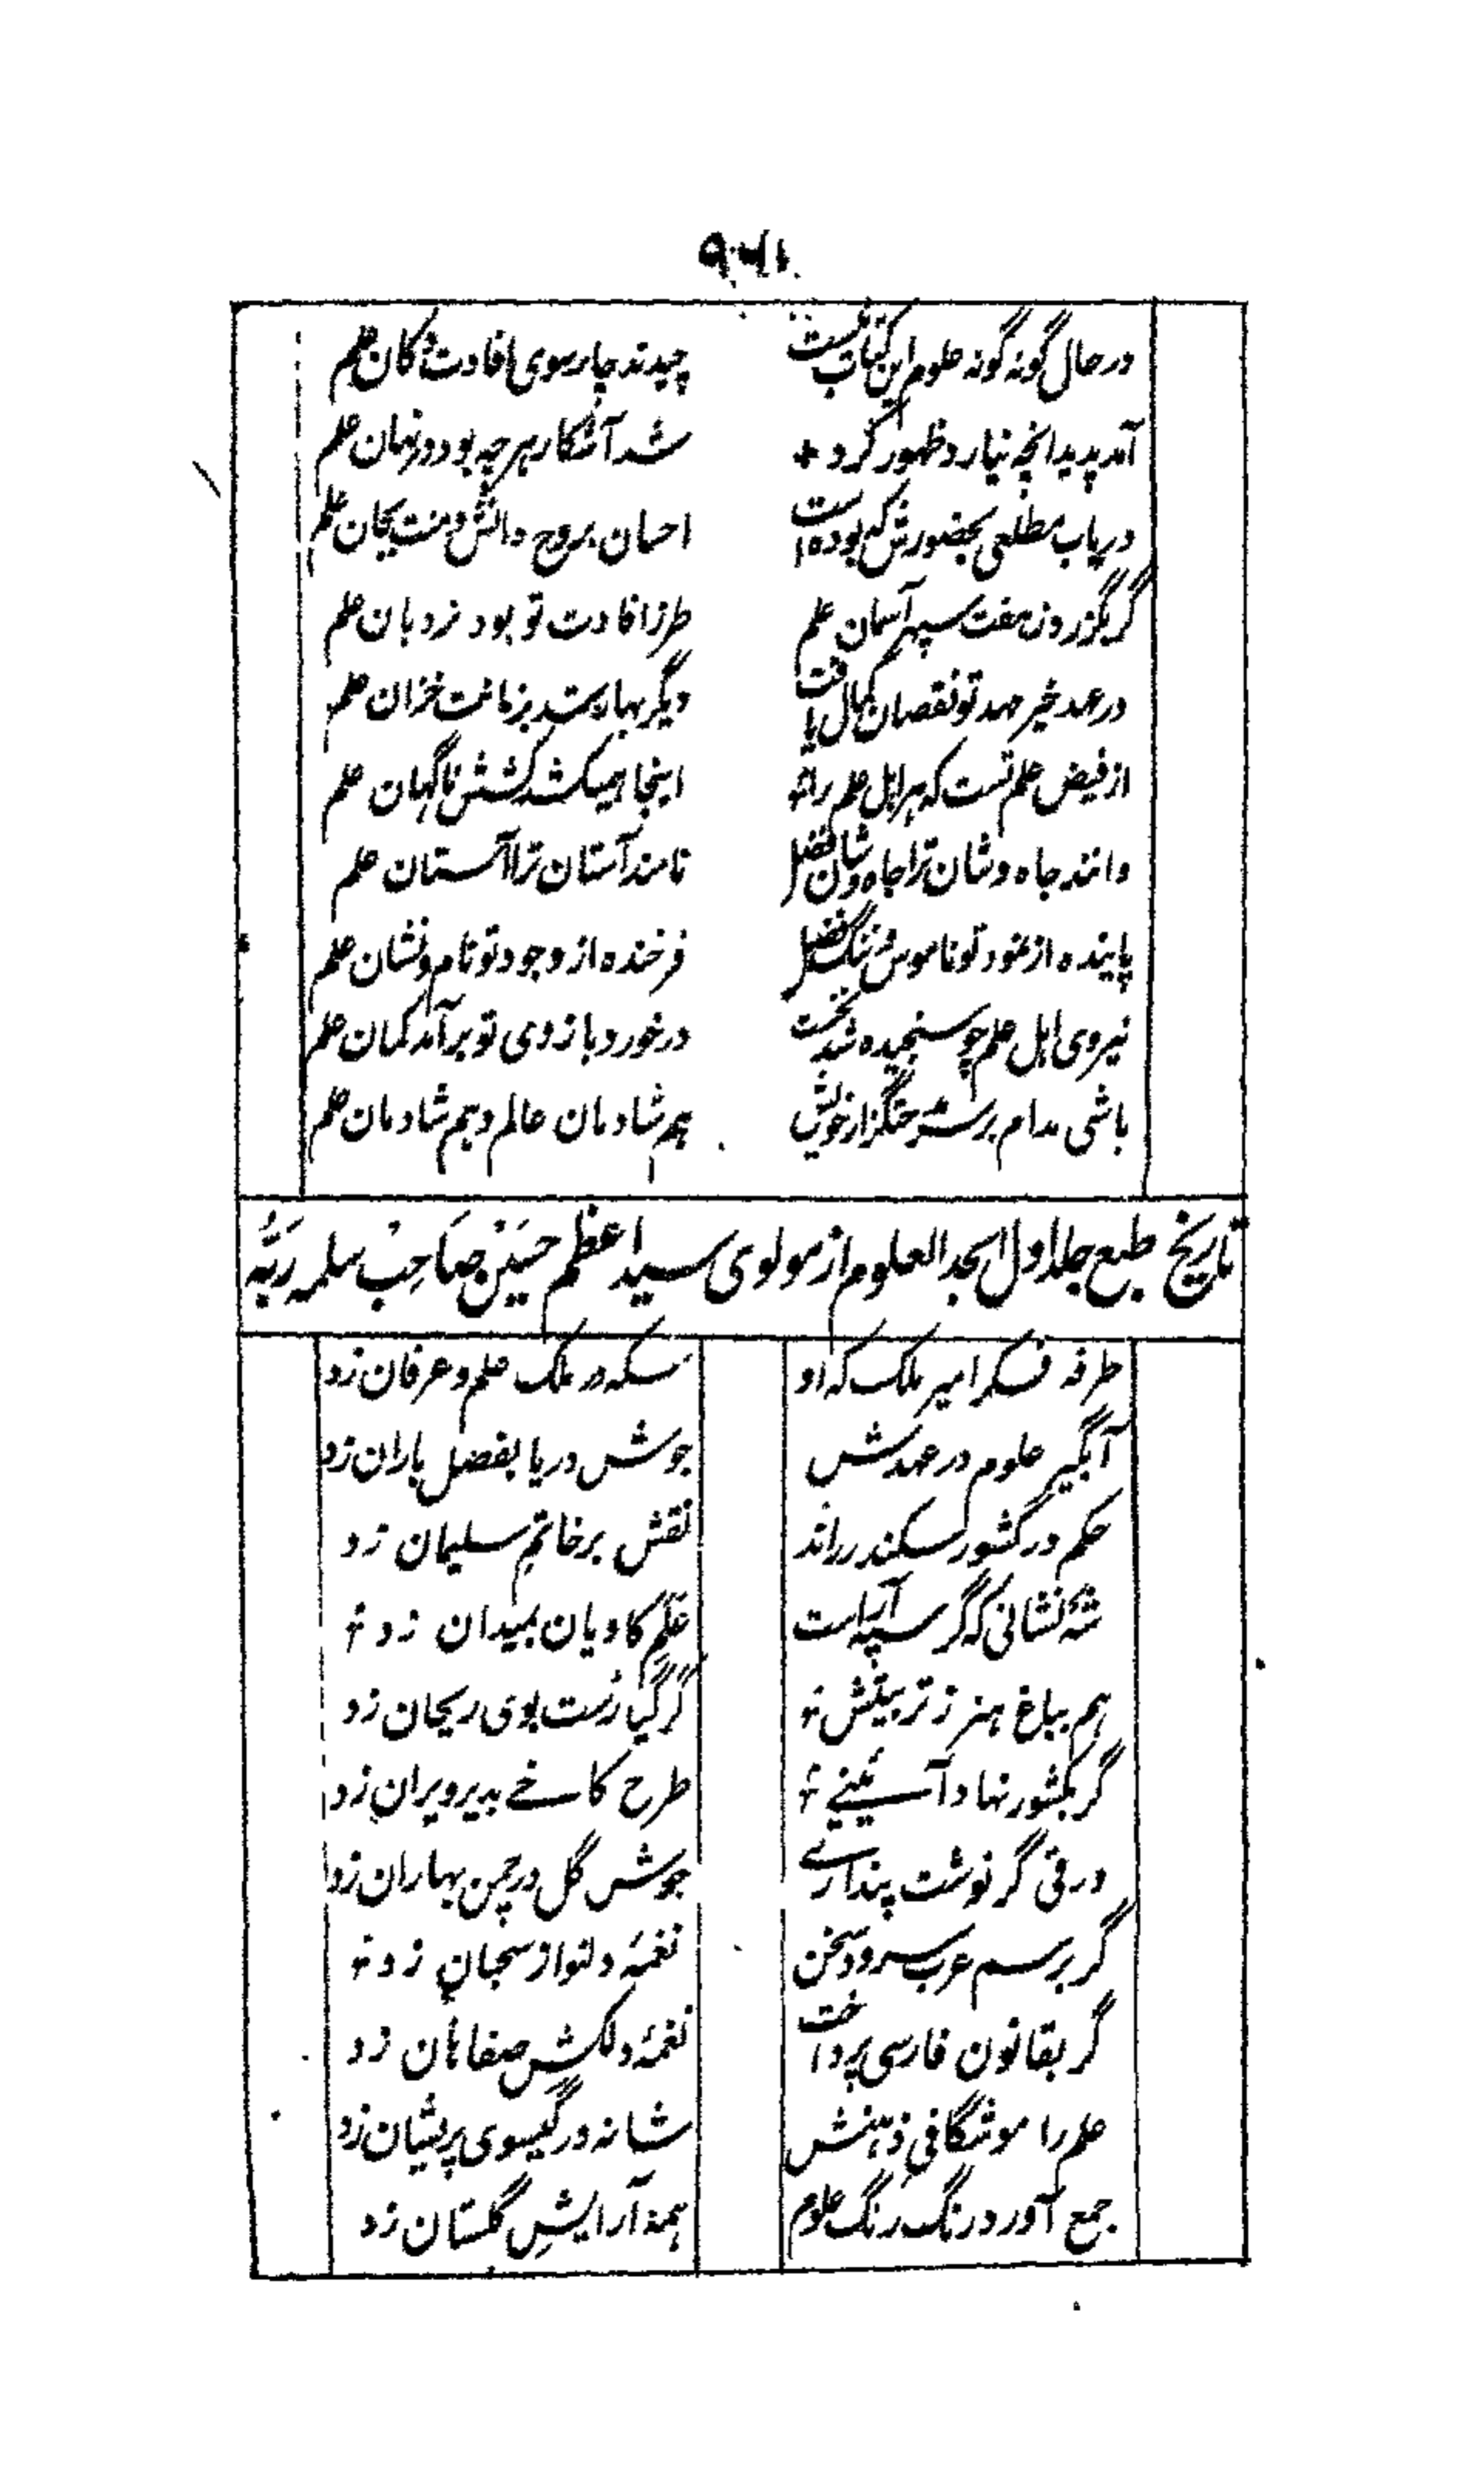 ۹۶۱
در حال گونه گونه علوم این کتاب نیست چیدند چارسوی افادت دکان علم
آمد پدید انچه نیارد ظهور کرد + شد آشکار هرچه بود در نهان علم
دریاب مطلعی بحضورش که بوده است احسان بروح دانش و منت بجان علم
گر بگذرد ز هفت سپهر آسمان علم طرز افادت تو بود نردبان علم
در عهد خیر مهد تو نقصان کمال یافت دیگر بهار شد بزمانت خزان علم
از فیض علم تست که هر اهل علم را اینجا همیکشد کشش ناگهان علم
دانند جاه و شان ترا جاه و شان فضل نامند آستان ترا آستان علم
پاینده از نمود تو ناموس و ننگ فضل فرخنده از وجود تو نام و نشان علم
نیروی اهل علم چو سنجیده شد نخست در خورد بازوی تو برآمد کمان علم
باشی مدام بر سر حقگزار خویش هم شادمان عالم و هم شادمان علم
تاریخ طبع جلد اول ابجد العلوم از مولوی سید اعظم حسین صاحب سلمه ربّه
طرفه فکر امیر ملک که او سکه در ملک علم و عرفان زد
آبگیر علوم در عهدش جوشش دریا بفضل باران زد
حکم در کشور سکندر راند نقش بر خاتم سلیمان زد
شه نشانی که گر سپه آراست علم کاویان بمیدان زد
هم بباغ هنر ز تربیتش گر گیا رست بوی ریحان زد
گر بکشور نهاد آئینے طرح کاخے بدیر ویران زد
ورقی گر نوشت پنداری جوشش گل در چمن بهاران زد
گر برسم عرب سرود سخن نغمهٔ دلنواز سحبان زد
گر بقانون فارسی پرداخت نغمهٔ دلکش صفاهان زد
علم را موشگافی ذهنش شانه در گیسوی پریشان زد
جمع آورد رنگ رنگ علوم همه آرایش گلستان زد